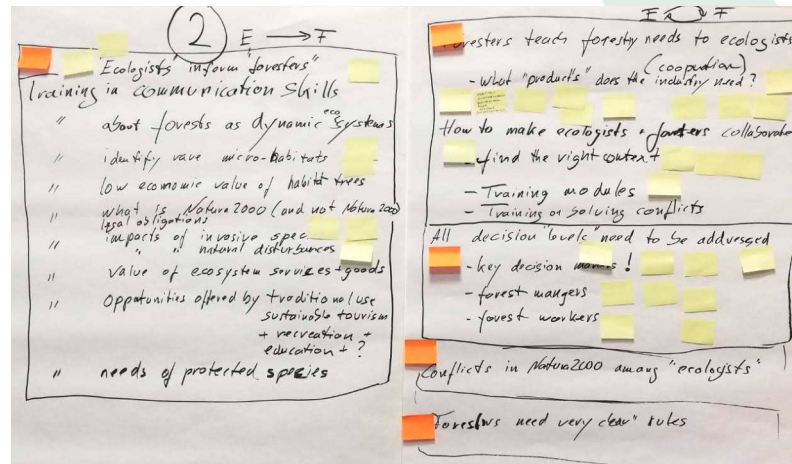 2 E → F
"Ecologists inform foresters"
Training in communication skills
" about forests as dynamic eco systems
" identify rare micro-habitats
" low economic value of habitat trees
" what is Natura2000 (and not Natura 2000
legal obligations
" impacts of invasive spec
" " " natural disturbances
" value of ecosystem services + goods
" Oppotunities offered by traditional use
sustainable tourism
+ recreation +
education + ?
" needs of protected species
E F
Foresters teach forestry needs to ecologists
(cooperation)
- what "products" does the industry need?
How to make ecologists + foresters collaborate
- find the right context
- Training modules
- Training on solving conflicts
All decision "levels" need to be addressed
- key decision makers!
- forest mangers
- forest workers
Conflicts in Natura2000 among "ecologists"
Foresters need very clear" rules